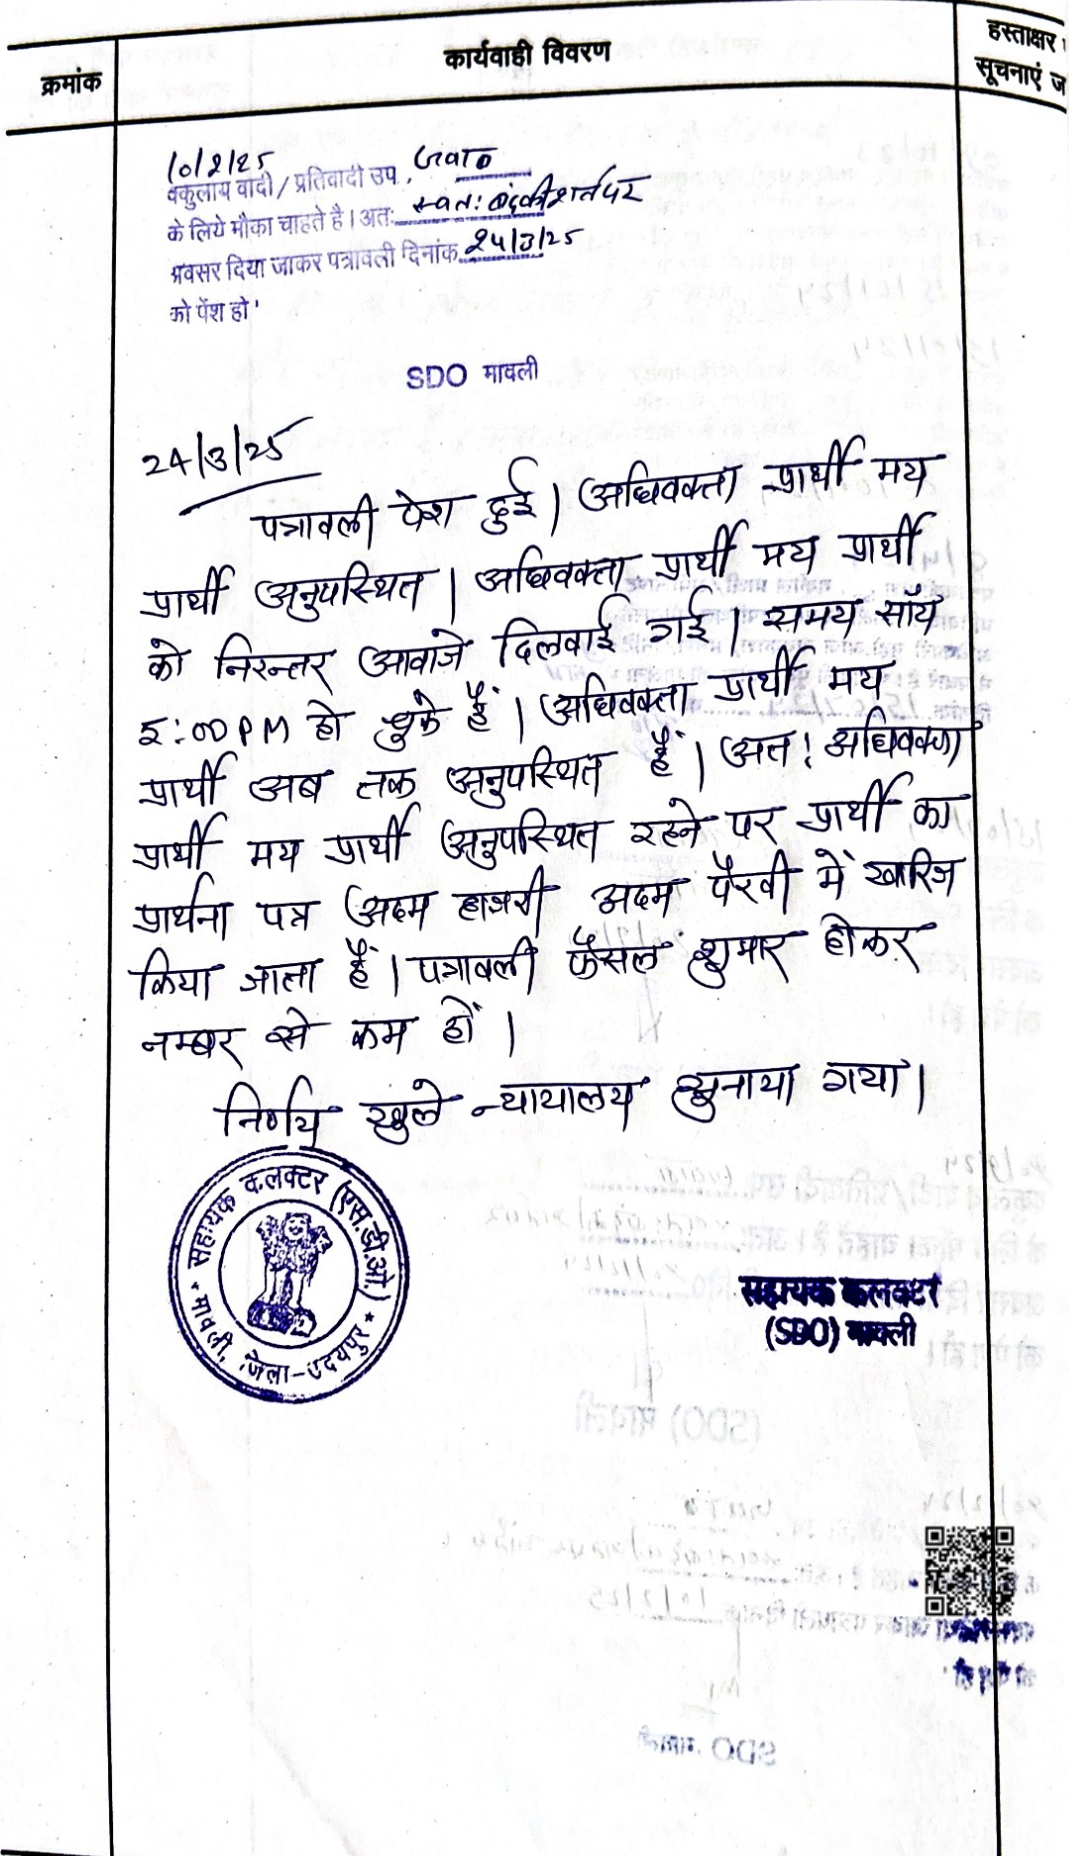 क्रमांक
कार्यवाही विवरण
हस्ताक्षर
सूचनाएं ज
10/2/25
वकुलाय वादी/प्रतिवादी उप. जवाब
के लिये मौका चाहते है। अतः स्वतः बंद की शर्त पर
अवसर दिया जाकर पत्रावली दिनांक 24/3/25
को पेंश हो
SDO मावली
24/3/25
पत्रावली पेश हुई। अधिवक्ता प्रार्थी मय
प्रार्थी अनुपस्थित। अधिवक्ता प्रार्थी मय प्रार्थी
को निरन्तर आवाजे दिलवाई गई। समय सॉय
5:00 PM हो चुके हैं। अधिवक्ता प्रार्थी मय
प्रार्थी अब तक अनुपस्थित हैं। अत: अधिवक्ता
प्रार्थी मय प्रार्थी अनुपस्थित रहने पर प्रार्थी का
प्रार्थना पत्र अदम हाजरी अदम पैरवी में खारिज
किया जाता हैं। पत्रावली फैसल शुमार होकर
नम्बर से कम हों।
निर्णय खुले न्यायालय सुनाया गया।
सहायक कलक्टर (एस.डी.ओ.)
मावली, जिला-उदयपुर
सहायक कलक्टर
(SDO) मावली